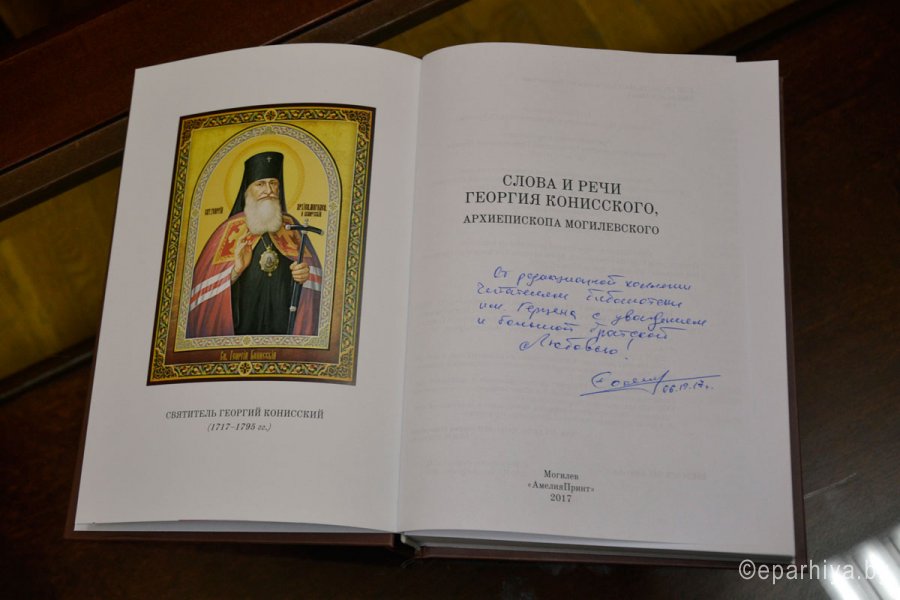 Св. Георгий Конисский
СВЯТИТЕЛЬ ГЕОРГИЙ КОНИССКИЙ
(1717–1795 гг.)
СЛОВА И РЕЧИ
ГЕОРГИЯ КОНИССКОГО,
АРХИЕПИСКОПА МОГИЛЕВСКОГО
От редакционной коллегии
читателям библиотеки
им. Герцена с уважением
и большой братской
Любовью!
Могилев
«АмелияПринт»
2017
©eparhiya.b